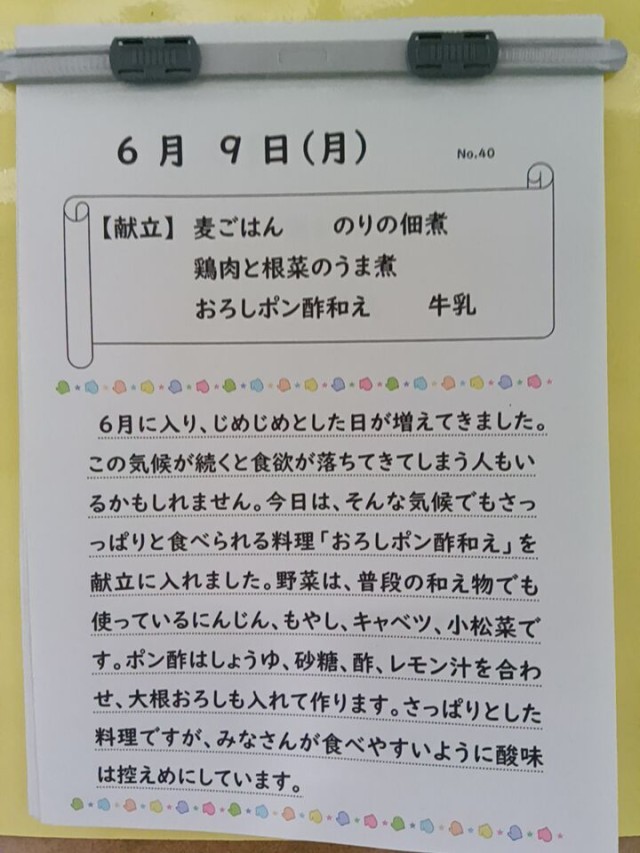 6月 9日(月)
No.40
【献立】 麦ごはん のりの佃煮
鶏肉と根菜のうま煮
おろしポン酢和え 牛乳
6月に入り、じめじめとした日が増えてきました。
この気候が続くと食欲が落ちてきてしまう人もい
るかもしれません。今日は、そんな気候でもさっ
っぱりと食べられる料理「おろしポン酢和え」を
献立に入れました。野菜は、普段の和え物でも
使っているにんじん、もやし、キャベツ、小松菜で
す。ポン酢はしょうゆ、砂糖、酢、レモン汁を合わ
せ、大根おろしも入れて作ります。さっぱりとした
料理ですが、みなさんが食べやすいように酸味
は控えめにしています。